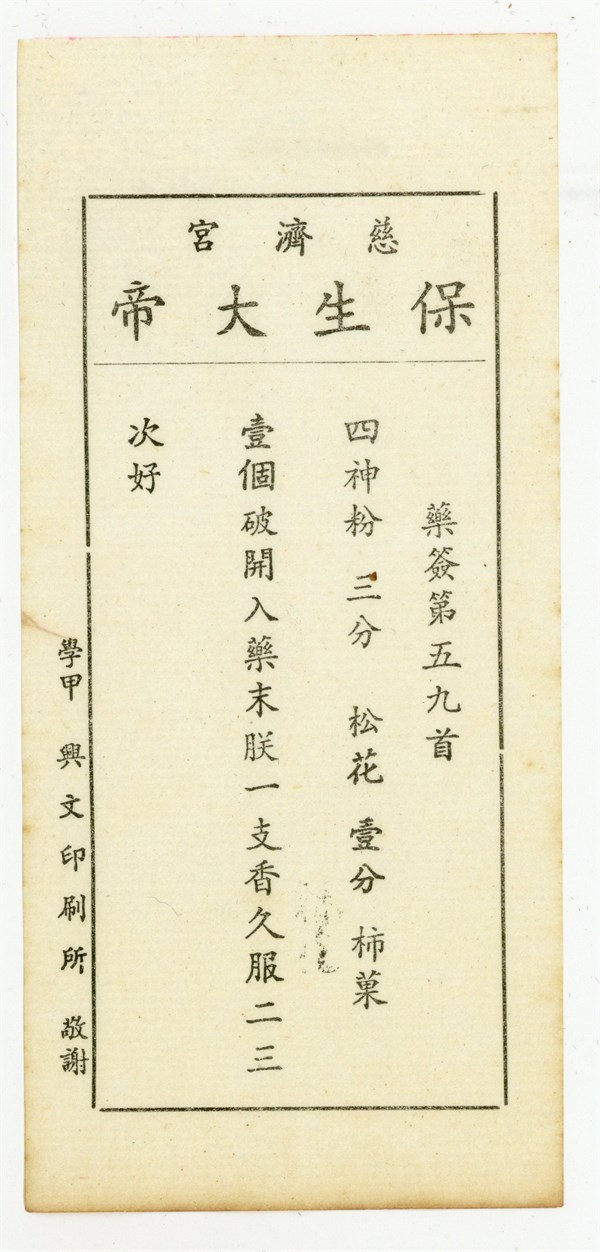 慈濟宮
保生大帝
藥簽第五九首
四神粉 三分 松花 壹分 柿菓
壹個破開入藥末朕一支香久服二三
次好
學甲 興文印刷所 敬謝